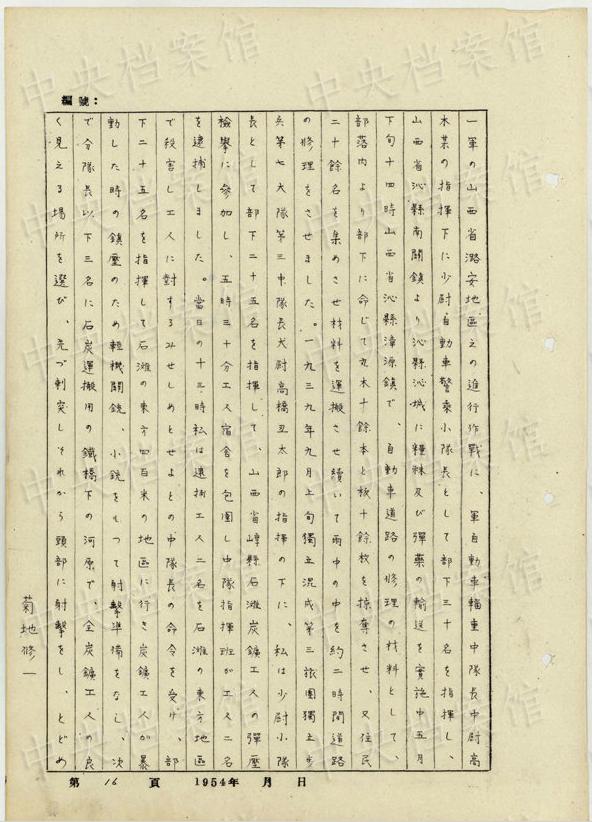 編號：
一軍の山西省潞安地區之の進行作戰に、軍自動車輜重中隊長中尉高
木某の指揮下に少尉自動車警乘小隊長として部下三十名を指揮し、
山西省沁縣南關鎮より沁縣沁城に糧秣及び彈藥の輸送を實施中五月
下旬十四時山西省沁縣漳源鎮で、自動車道路の修理の材料として、
部落内より部下に命じて丸木十餘本と板十餘枚を掠奪させ、又住民
二十餘名を集めさせ材料を運搬させ續いて雨中の中を約二時間道路
の修理をさせました。一九三九年九月上旬獨立混成第三旅團獨立步
兵第七大隊第三中隊長大尉高橋丑太郎の指揮の下に、私は少尉小隊
長として部下二十五名を指揮して、山西省崞縣石灘炭鑛工人の彈壓
檢擧に參加し、五時三十分工人宿舍を包圍し中隊指揮班が工人二名
を逮捕しました。當日の十三時私は逮捕工人二名を石灘の東方地區
で殺害し工人に對するみせしめとせよとの中隊長の命令を受け、部
下二十五名を指揮して石灘の東方四百米の地區に行き炭鑛工人が暴
動した時の鎮壓のため輕機關銃、小銃をもつて射擊準備をなし、次
で分隊長以下三名に石炭運搬用の鐵橋下の河原で、全炭鑛工人の良
く見える場所を選び、先づ刺突しそれから頭部に射擊をし、とどめ
菊地修一
第 16 頁 1954年 月 日
中央档案馆
中央档案馆
中央档案馆
中央档案馆
中央档案馆
中央档案馆
中央档案馆
中央档案馆